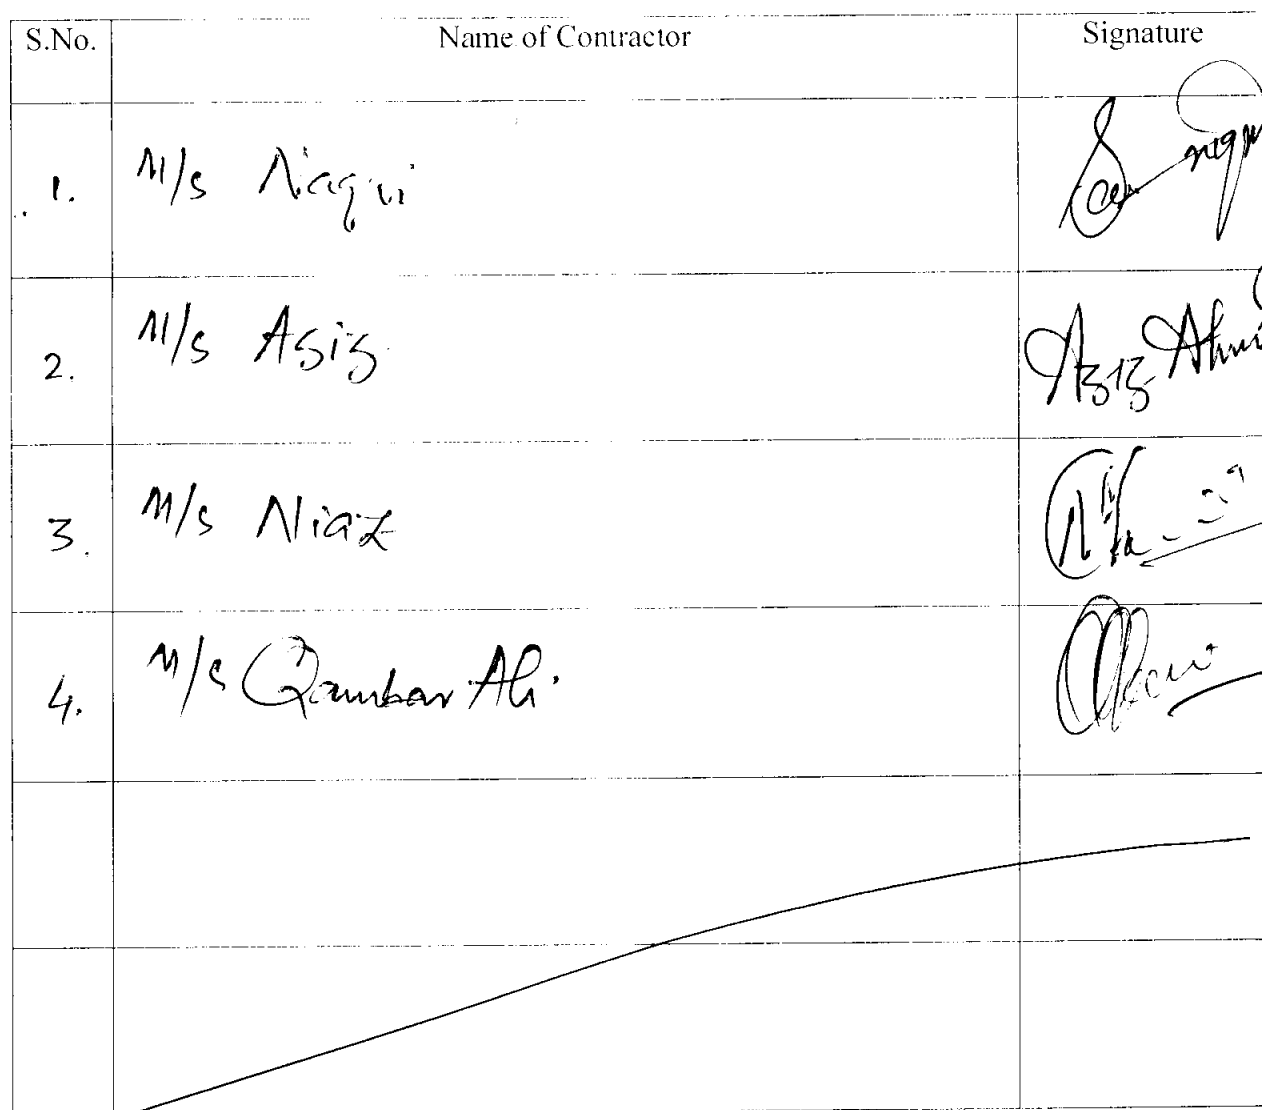 S.No. Name of Contractor Signature
1. M/s Naqvi
2. M/s Aziz Aziz
3. M/s Niaz
4. M/s Qambar Ali